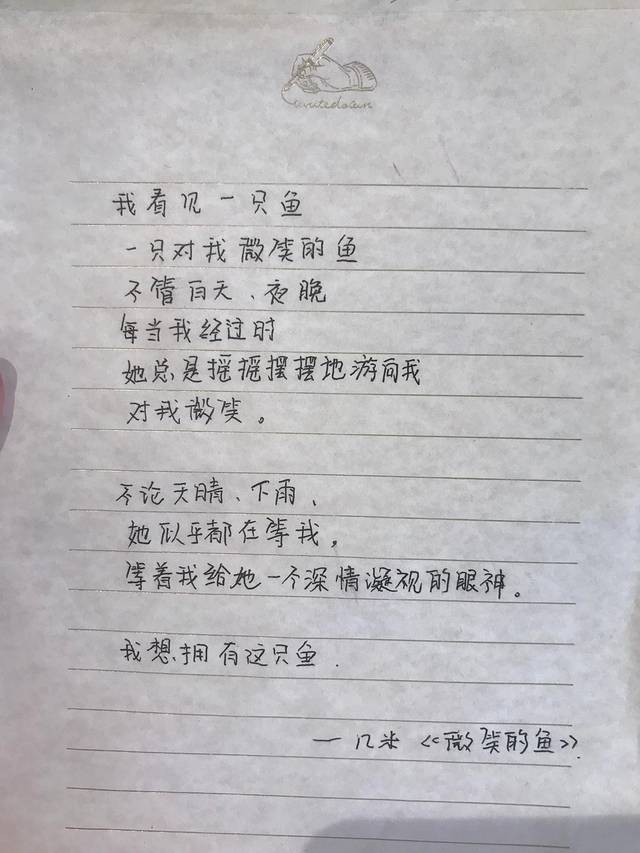 writtedown
我看见一只鱼
一只对我微笑的鱼
不管白天、夜晚
每当我经过时
她总是摇摇摆摆地游向我
对我微笑。
不论天晴、下雨、
她似乎都在等我,
等着我给她一个深情凝视的眼神。
我想拥有这只鱼.
—几米《微笑的鱼》